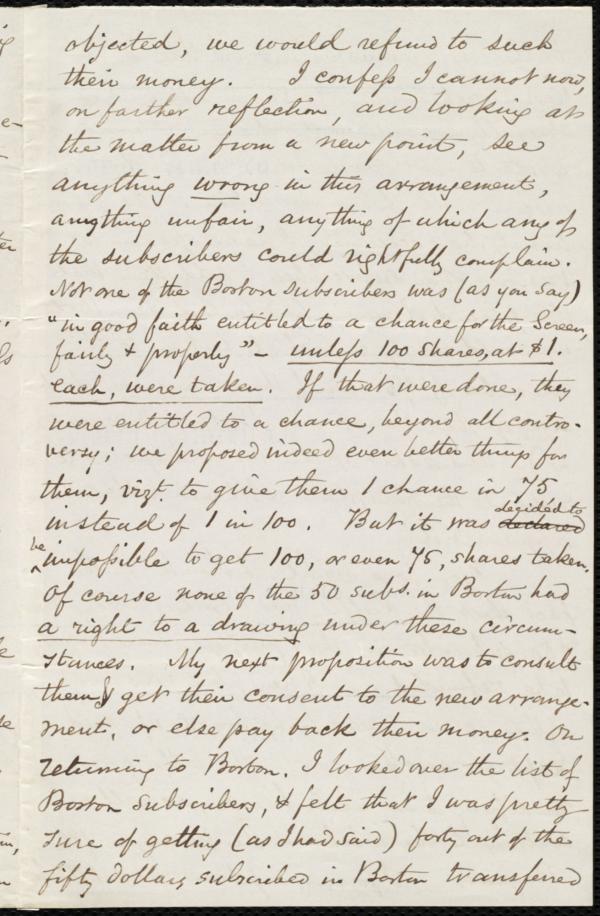 objected, we would refund to such
their money. I confess I cannot now,
on farther reflection, and looking at
the matter from a new point, see
anything wrong in this arrangement,
anything unfair, anything of which any of
the subscribers could rightfully complain.
Not one of the Boston subscribers was (as you say)
"in good faith entitled to a chance for the Screen,
fairly & properly" - unless 100 shares, at $1.
each, were taken. If that were done, they
were entitled to a chance, beyond all contro-
versy; we proposed indeed even better things for
them, vizt. to give them 1 chance in 75
instead of 1 in 100. But it was declared decided to
be impossible to get 100, or even 75, shares taken.
Of course none of the 50 subs. in Boston had
a right to a drawing under these circum-
stances. My next proposition was to consult
them & get their consent to the new arrange-
ment, or else pay back their money. On
returning to Boston, I looked over the list of
Boston subscribers, & felt that I was pretty
sure of getting (as I had said) forty out of the
fifty dollars subscribed in Boston transferred